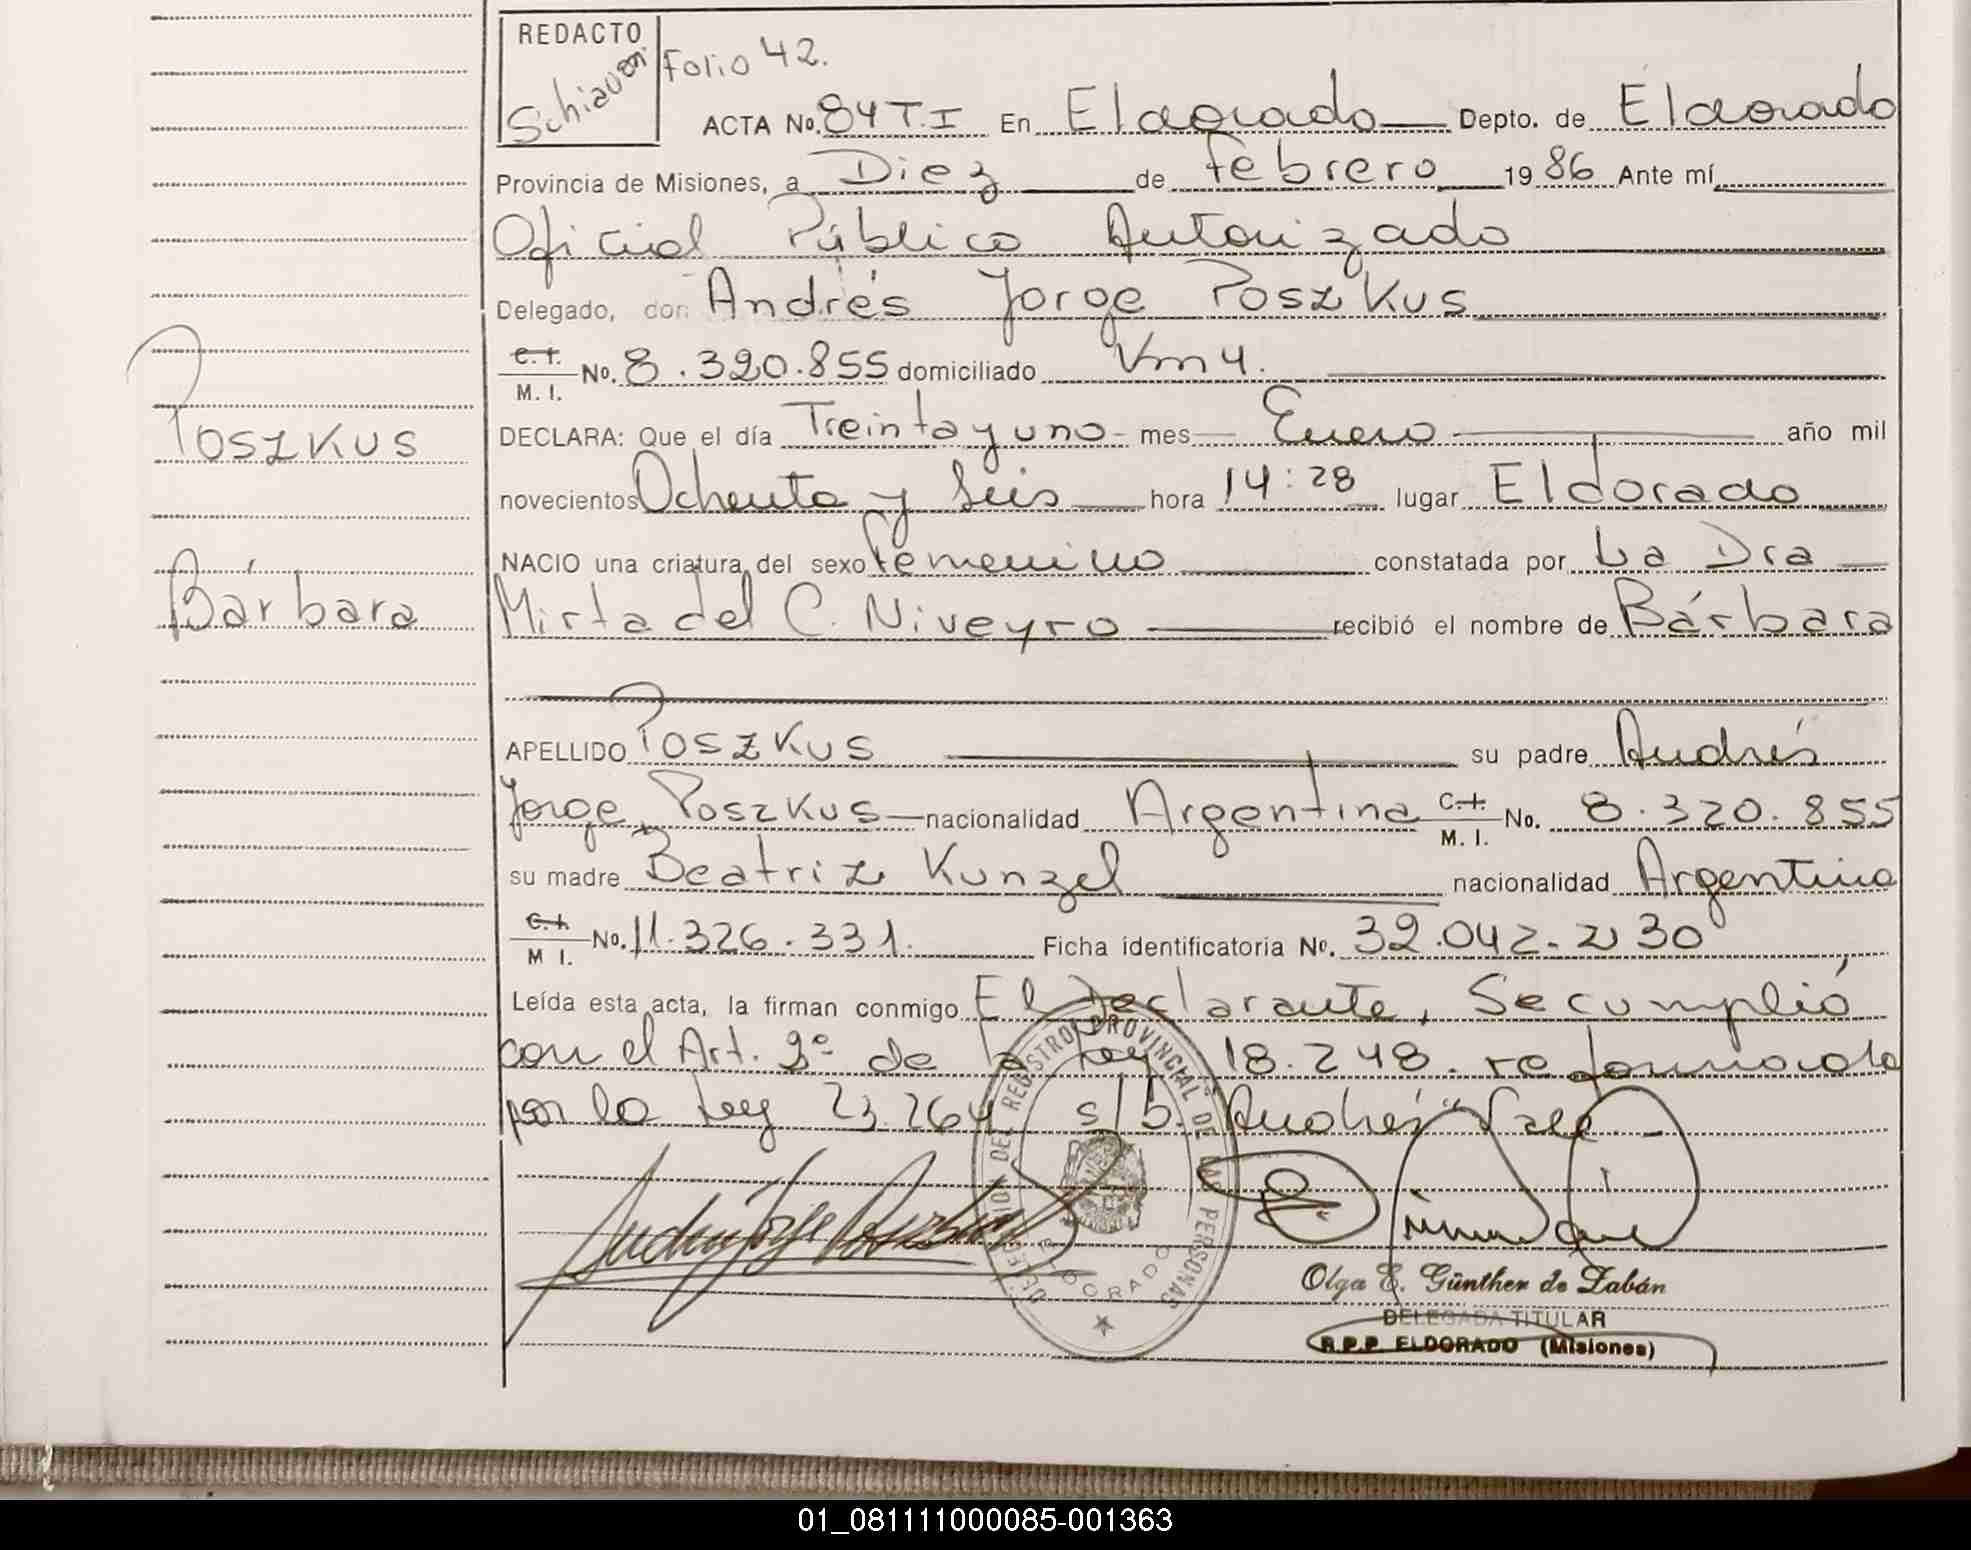 REDACTO
Schiavoni
Folio 42.
ACTA No. 84 T.I En Eldorado Depto. de Eldorado
Provincia de Misiones, a Diez de febrero 19 86 Ante mí
Oficial Público Autorizado
Delegado, don Andrés Jorge Poszkus
C. I. / M. I. No. 8.320.855 domiciliado Km 4.
DECLARA: Que el día Treinta y uno mes Enero año mil
novecientos Ochenta y Seis hora 14:28 lugar Eldorado
NACIO una criatura del sexo femenino constatada por La Dra
Mirta del C. Niveyro recibió el nombre de Bárbara
APELLIDO Poszkus su padre Andrés
Jorge Poszkus nacionalidad Argentina C. I. / M. I. No. 8.320.855
su madre Beatriz Kunzel nacionalidad Argentina
C. I. / M I. No. 11.326.331. Ficha identificatoria No. 32.042.230
Leída esta acta, la firman conmigo El Declarante, Se cumplió
con el Art. 2º de la Ley 18.248. reformada
por la Ley 23.264 s/b. Andrés "Vale
Poszkus
Bárbara
Andrés Jorge Poszkus
DELEGACION DEL REGISTRO PROVINCIAL DE LAS PERSONAS
ELDORADO
Olga E. Günther de Zabán
DELEGADA TITULAR
R.P.P. ELDORADO (Misiones)
01_081111000085-001363